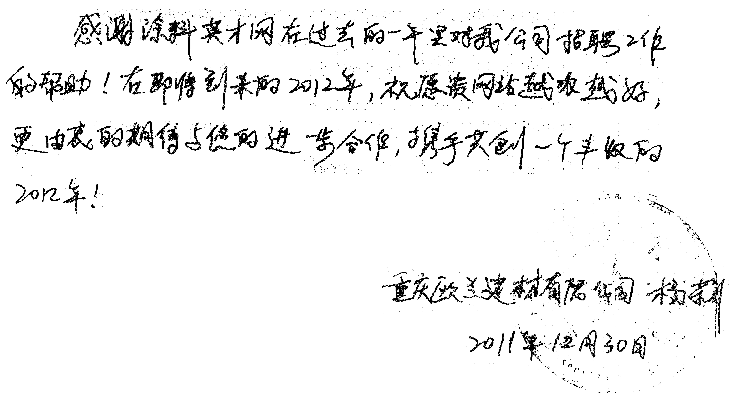 感谢涂料英才网在过去的一年里对我公司招聘工作
的帮助！在即将到来的2012年，祝愿贵网站越办越好，
更由衷的期待与您的进一步合作，携手共创一个丰收的
2012年！
重庆欧兰建材有限公司 杨
2011年12月30日